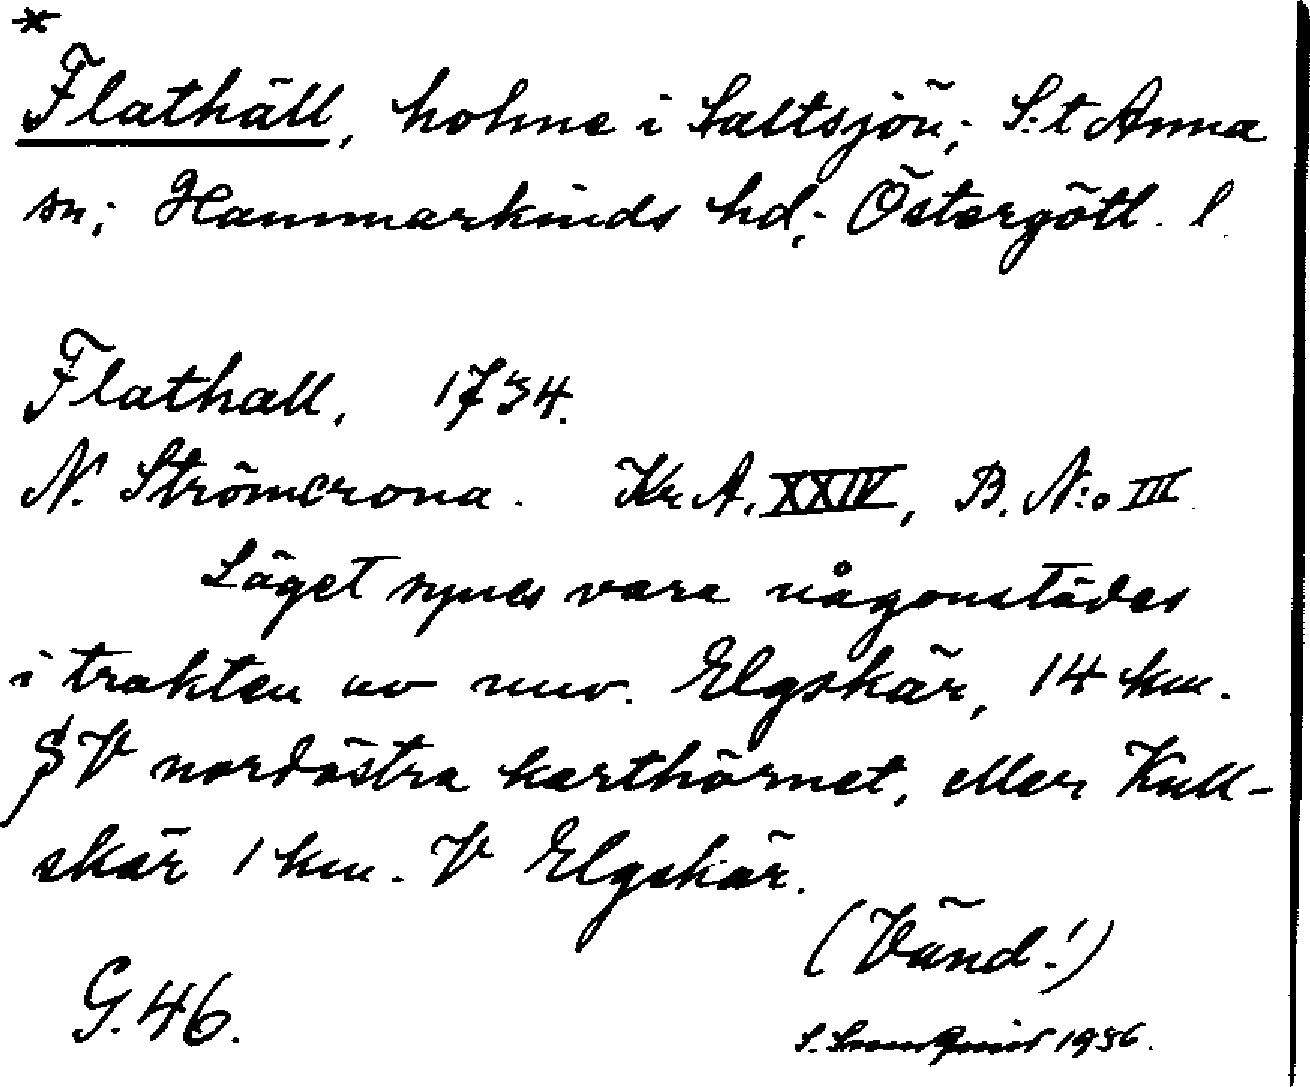 *
Flathäll, holme i Saltsjön; S:t Anna
sn; Hammarkinds hd; Östergötl. l
Flathall. 1734.
N. Strömcrona. Kr A. XXIV, B. N:o III
Läget synes vara någonstädes
i trakten av nuv. Elgskär, 14 km.
SV nordöstra karthörnet, eller Kull-
skär 1 km. V Elgskär.
(Vänd!)
G. 46.
S. 1936.